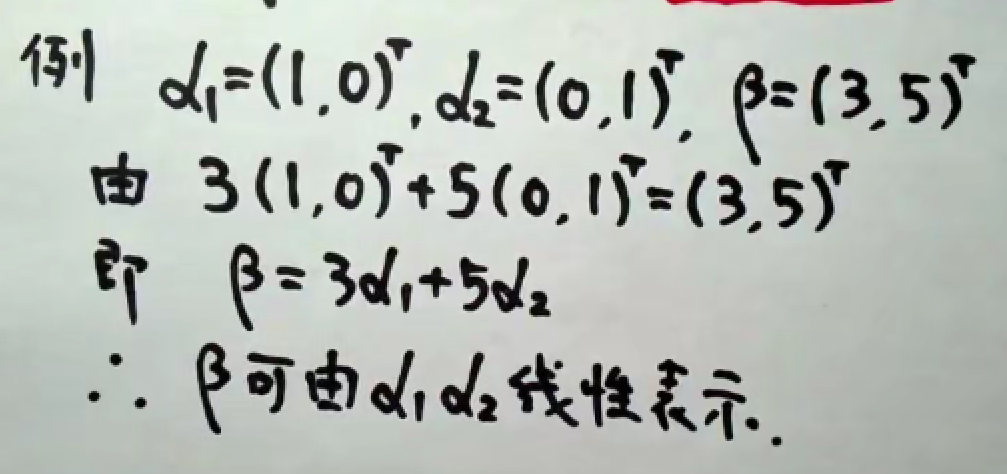 例 α₁=(1,0)ᵀ,α₂=(0,1)ᵀ, β=(3,5)ᵀ
由 3(1,0)ᵀ+5(0,1)ᵀ=(3,5)ᵀ
即 β=3α₁+5α₂
∴ β可由α₁α₂线性表示.